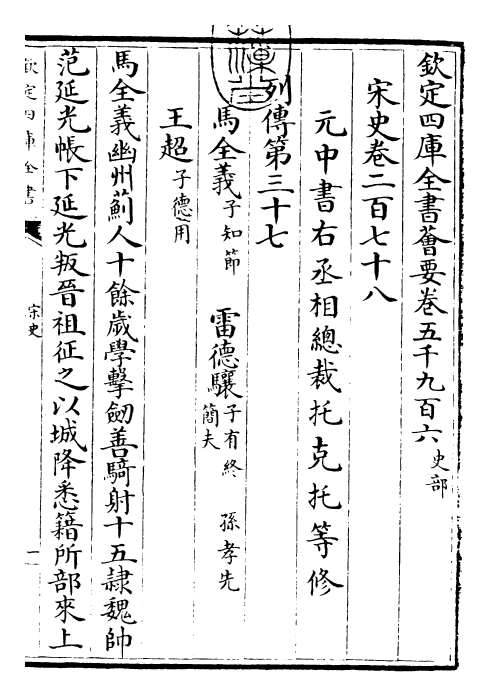 欽定四庫全書薈要卷五千九百六 史部
宋史卷二百七十八
元中書右丞相總裁托克托等修
列傳第三十七
馬全義 子知節 雷德驤 子有終 簡夫 孫孝先
王超 子德用
馬全義幽州薊人十餘歲學擊劒善騎射十五隷魏帥
范延光帳下延光叛晉祖征之以城降悉籍所部來上
欽定四庫全書
宋史
一